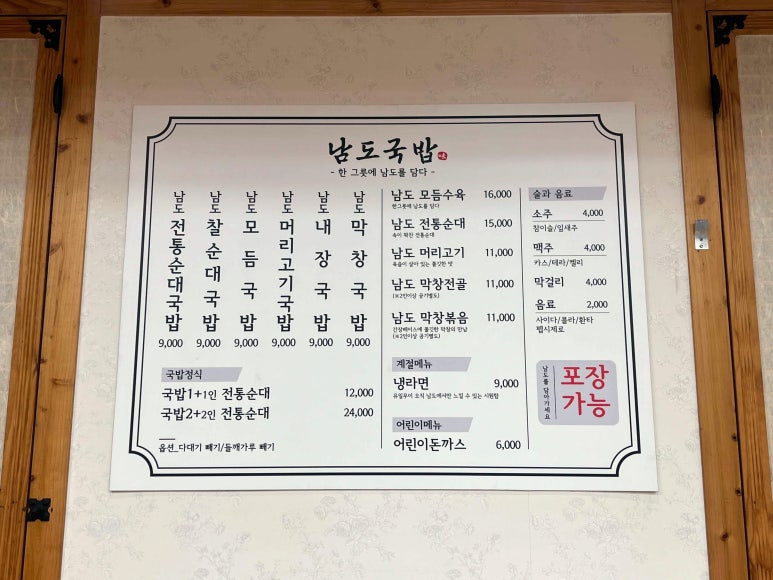 남도국밥
- 한 그릇에 남도를 담다 -
남도 전통순대국밥
9,000
남도 찰순대국밥
9,000
남도 모듬국밥
9,000
남도 머리고기국밥
9,000
남도 내장국밥
9,000
남도 막창국밥
9,000
국밥정식
국밥1+1인 전통순대 12,000
국밥2+2인 전통순대 24,000
옵션_다대기 빼기/들깨가루 빼기
남도 모듬수육 16,000
한그릇에 남도를 담다
남도 전통순대 15,000
속이 꽉찬 전통순대
남도 머리고기 11,000
육즙이 살아 있는 쫄깃한 맛
남도 막창전골 11,000
(※2인이상 공기별도)
남도 막창볶음 11,000
간장베이스에 쫄깃한 막창의 만남
(※2인이상 공기별도)
계절메뉴
냉라면 9,000
유일무이 오직 남도에서만 느낄 수 있는 시원함
어린이메뉴
어린이돈까스 6,000
술과 음료
소주 4,000
참이슬/잎새주
맥주 4,000
카스/테라/켈리
막걸리 4,000
음료 2,000
사이다/콜라/환타
펩시제로
남도를 담아가세요
포장
가능